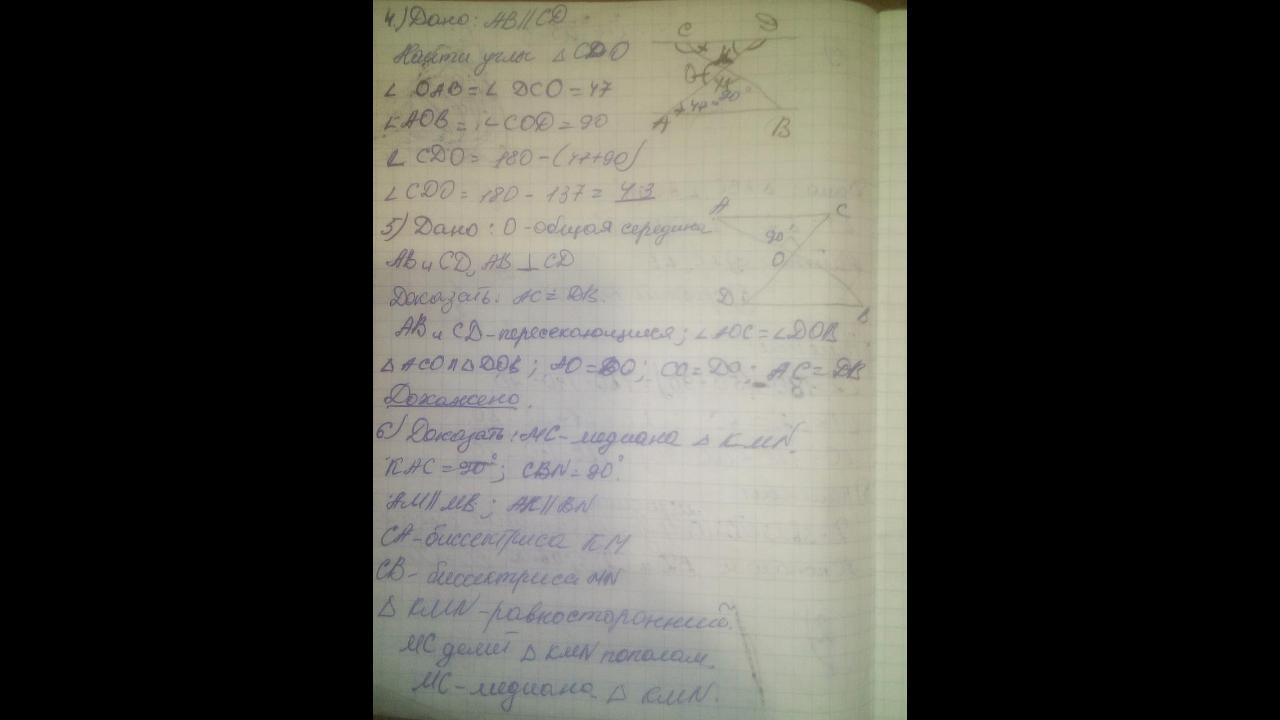 4.) Дано: AB || CD
Найти углы △ CDO
∠ OAB = ∠ DCO = 47
∠ AOB = ∠ COD = 90
∠ CDO = 180 - (47+90)
∠ CDO = 180 - 137 = 43
5) Дано: O - общая середина
AB и CD, AB ⊥ CD
Доказать: AC = DB.
AB и CD - пересекающиеся; ∠ AOC = ∠ DOB
△ ACO и △ DOB; AO = BO; CO = DO; AC = DB
Докажено.
6) Доказать: MC - медиана △ KMN.
KAC = 90°; CBN = 90°
AM || MB; AK || BN
CA - биссектриса KM
CB - биссектриса MN
△ KMN - равносторонний.
MC делит △ KMN пополам.
MC - медиана △ KMN.
C D
O
47° 90°
A B
A C
90°
O
D B